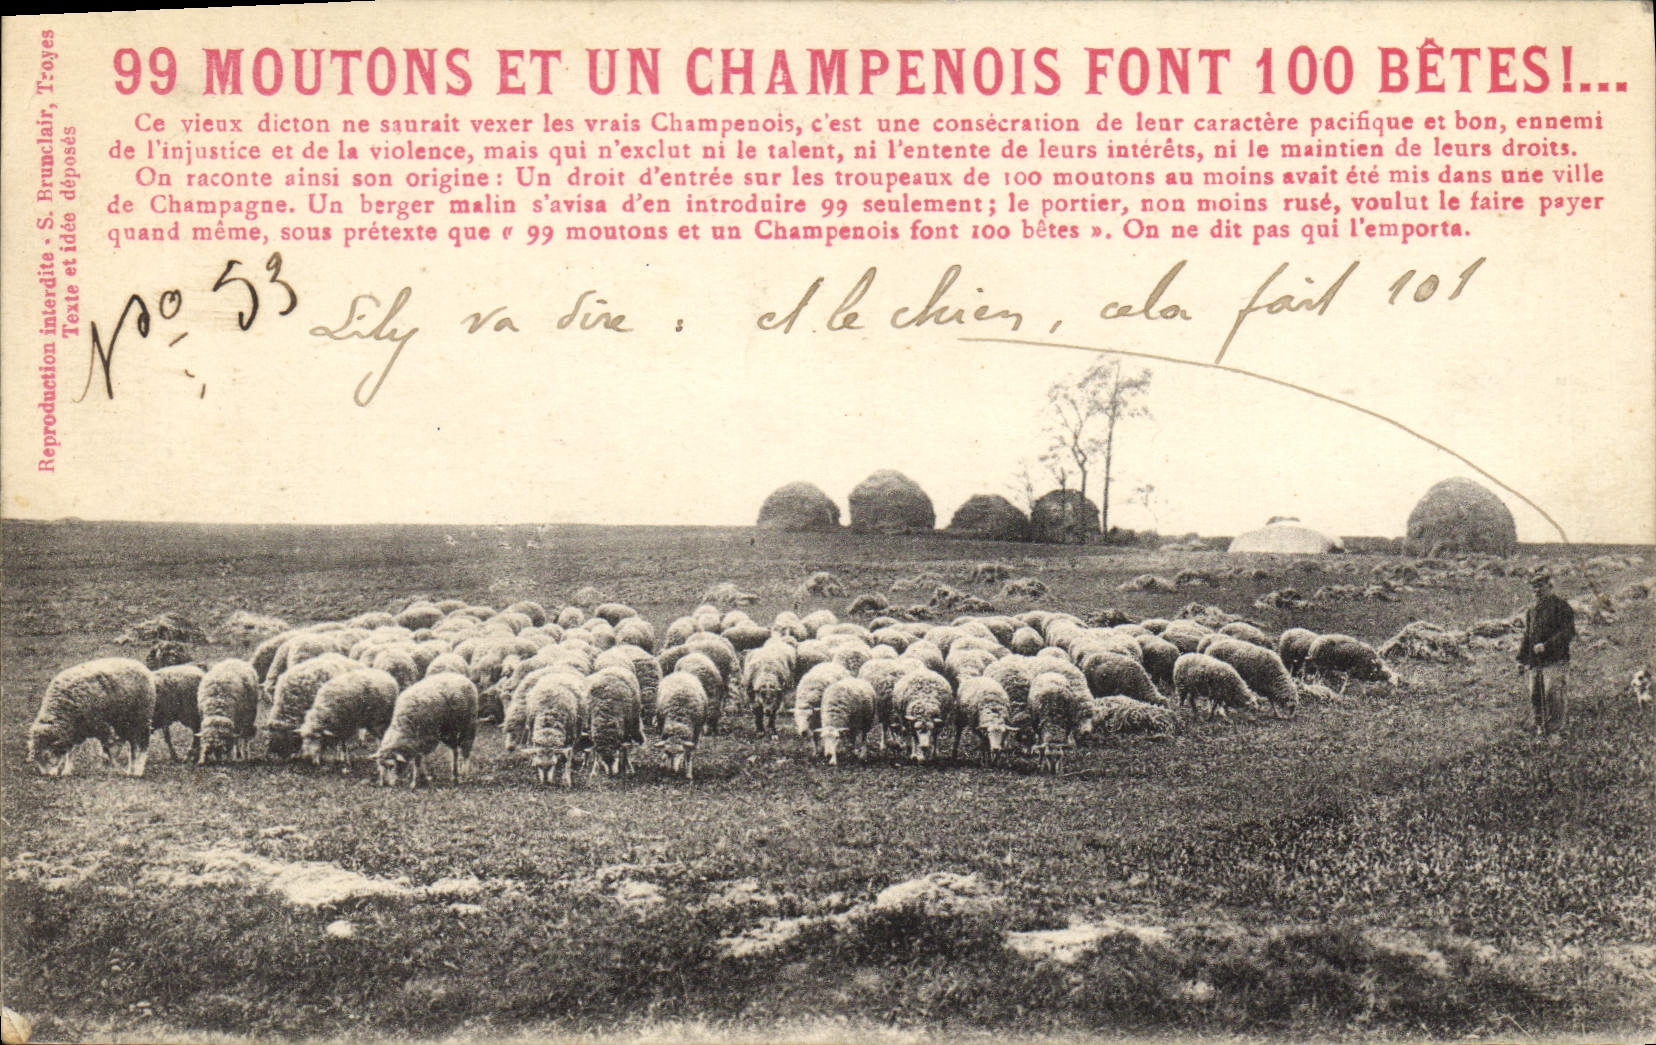 99 MOUTONS ET UN CHAMPENOIS FONT 100 BÊTES!...
Ce vieux dicton ne saurait vexer les vrais Champenois, c'est une consécration de leur caractère pacifique et bon, ennemi
de l'injustice et de la violence, mais qui n'exclut ni le talent, ni l'entente de leurs intérêts, ni le maintien de leurs droits.
On raconte ainsi son origine : Un droit d'entrée sur les troupeaux de 100 moutons au moins avait été mis dans une ville
de Champagne. Un berger malin s'avisa d'en introduire 99 seulement ; le portier, non moins rusé, voulut le faire payer
quand même, sous prétexte que « 99 moutons et un Champenois font 100 bêtes ». On ne dit pas qui l'emporta.
Reproduction interdite - S. Brunclair, Troyes
Texte et idée déposés
No 53
Lily va dire : et le chien, cela fait 101